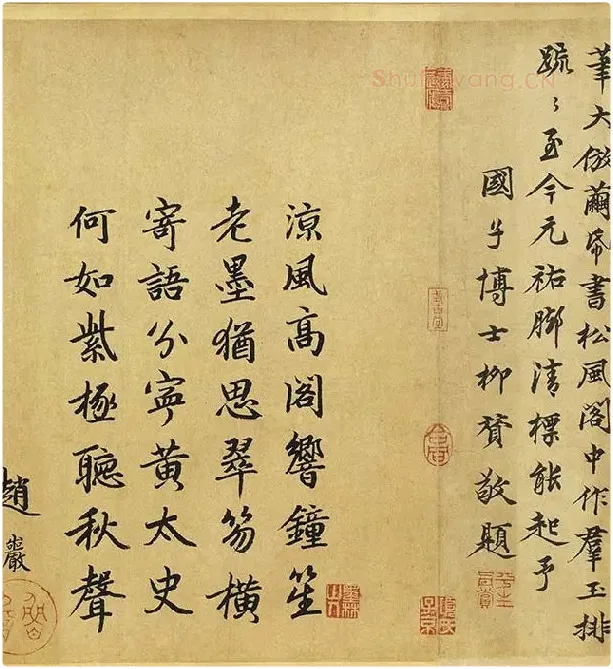 筆大倣繭帋書松風閣中作羣玉排
䟽〻至今元祐脚清標能起予
國子博士柳贇敬題
涼風高閣響鐘笙
老墨猶思翠笏橫
寄語分寧黃太史
何如紫極聽秋聲
趙巖